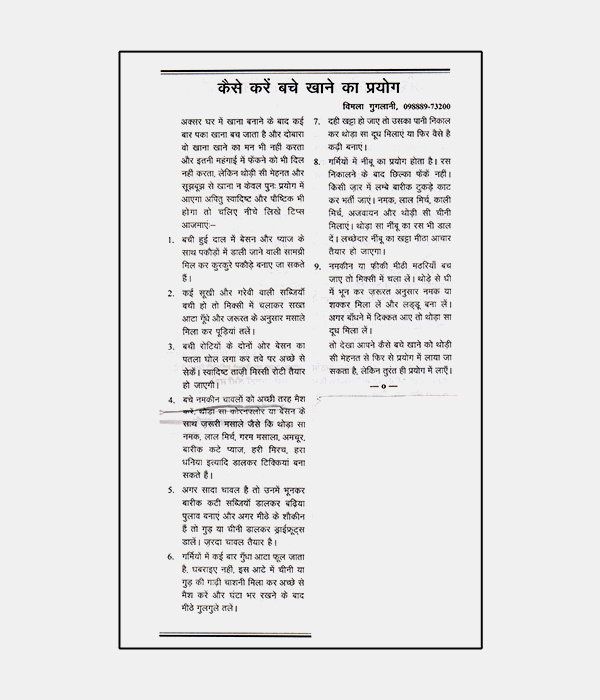 कैसे करें बचे खाने का प्रयोग
विमला गुगलानी, 098889-73200
अक्सर घर में खाना बनाने के बाद कई
बार पका खाना बच जाता है और दोबारा
वो खाना खाने का मन भी नहीं करता
और इतनी महंगाई में फेंकने को भी दिल
नहीं करता, लेकिन थोड़ी सी मेहनत और
सूझबूझ से खाना न केवल पुनः प्रयोग में
आएगा अपितु स्वादिष्ट और पौष्टिक भी
होगा तो चलिए नीचे लिखे टिप्स
आजमाएं:–
1. बची हुई दाल में बेसन और प्याज के
साथ पकौड़ों में डाली जाने वाली सामग्री
मिल कर कुरकुरे पकौड़े बनाए जा सकते
हैं।
2. कई सूखी और गरेवी वाली सब्जियाँ
बची हो तो मिक्सी में चलाकर सख्त
आटा गूँथे और जरूरत के अनुसार मसाले
मिला कर पूड़ियां तलें।
3. बची रोटियों के दोनों ओर बेसन का
पतला घोल लगा कर तवे पर अच्छे से
सेकें। स्वादिष्ट ताज़ी मिस्सी रोटी तैयार
हो जाएगी।
4. बचे नमकीन चावलों को अच्छी तरह मैश
करें, थोड़ा सा कॉरनफ्लोर या बेसन के
साथ ज़रूरी मसाले जैसे कि थोड़ा सा
नमक, लाल मिर्च, गरम मसाला, अमचूर,
बारीक कटे प्याज, हरी मिरच, हरा
धनिया इत्यादि डालकर टिक्कियां बना
सकते हैं।
5. अगर सादा चावल है तो उनमें भूनकर
बारीक कटी सब्जियाँ डालकर बढ़िया
पुलाव बनाएं और अगर मीठे के शौकीन
हैं तो गुड़ या चीनी डालकर ड्राईफ्रूट्स
डालें। ज़रदा चावल तैयार है।
6. गर्मियों में कई बार गुँधा आटा फूल जाता
है, घबराइए नहीं, इस आटे में चीनी या
गुड़ की गाढ़ी चाशनी मिला कर अच्छे से
मैश करें और घंटा भर रखने के बाद
मीठे गुलगुले तलें।
7. दही खट्टा हो जाए तो उसका पानी निकाल
कर थोड़ा सा दूध मिलाएं या फिर वैसे है
कढ़ी बनाएं।
8. गर्मियों में नींबू का प्रयोग होता है। रस
निकालने के बाद छिल्का फेंकें नहीं।
किसी ज़ार में लम्बे बारीक टुकड़े काट
कर भर्ती जाएं। नमक, लाल मिर्च, काली
मिर्च, अजवायन और थोड़ी सी चीनी
मिलाएं। थोड़ा सा नींबू का रस भी डाल
दें। लच्छेदार नींबू का खट्टा मीठा आचार
तैयार हो जाएगा।
9. नमकीन या फीकी मीठी मठरियाँ बच
जाए तो मिक्सी में चला लें। थोड़े से घी
में भून कर ज़रूरत अनुसार नमक या
शक्कर मिला लें और लड्डू बना लें।
अगर बाँधने में दिक्कत आए तो थोड़ा सा
दूध मिला लें।
तो देखा आपने कैसे बचे खाने को थोड़ी
सी मेहनत से फिर से प्रयोग में लाया जा
सकता है, लेकिन तुरंत ही प्रयोग में लाएँ।
— o —